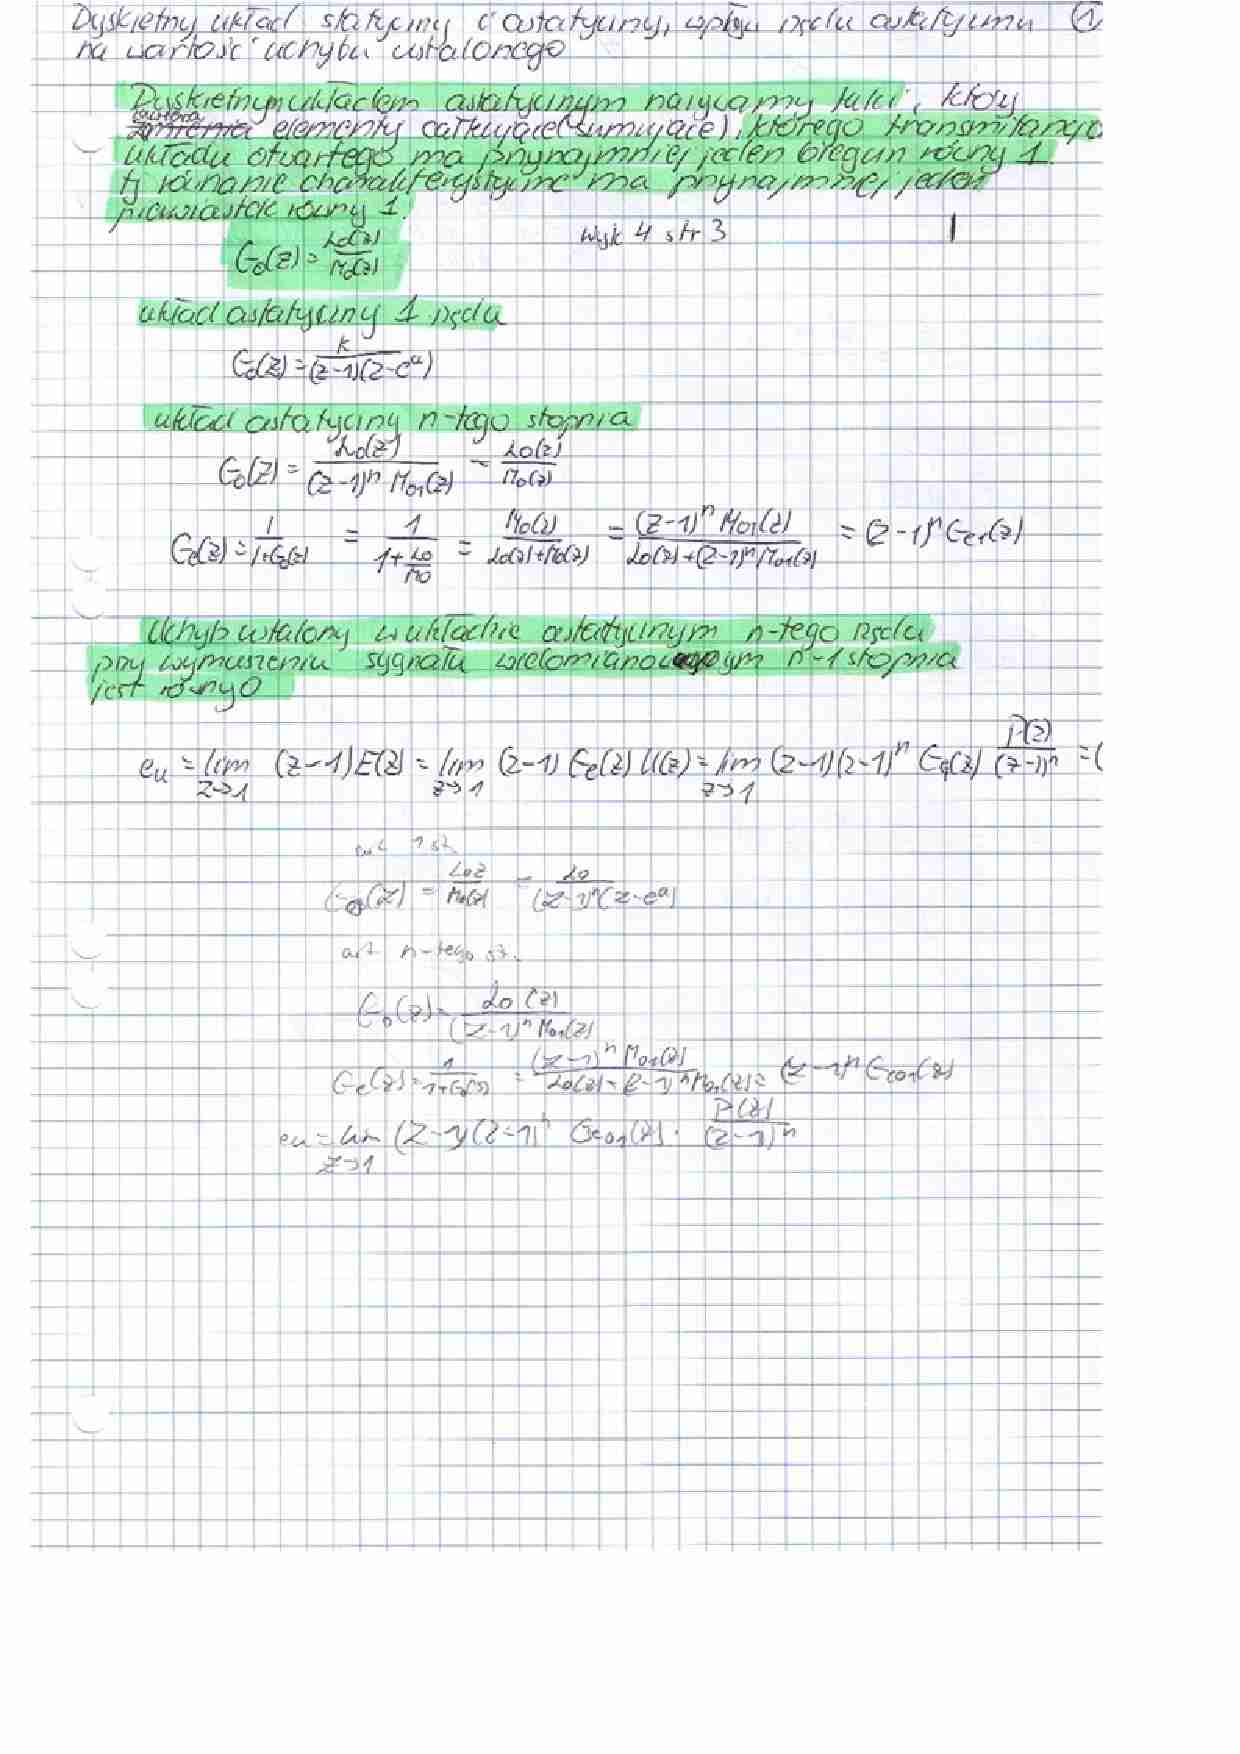 Dyskretny układ statyczny i astatyczny, wpływ rzędu astatyzmu ①
na wartość uchybu ustalonego
Dyskretnym układem astatycznym nazywamy taki, który
zawiera elementy całkujące (sumujące), którego transmitancja
układu otwartego ma przynajmniej jeden biegun równy 1.
tj równanie charakterystyczne ma przynajmniej jeden
pierwiastek równy 1.
G₀(z) = L₀(z)/M₀(z) wyk 4 str 3
układ astatyczny 1 rzędu
G₀(z) = k/((z-1)(z-eᵃ))
układ astatyczny n-tego stopnia
G₀(z) = L₀(z)/((z-1)ⁿ M₀₁(z)) = L₀(z)/M₀(z)
Gₑ(z) = 1/(1+G₀(z)) = 1/(1+L₀/M₀) = M₀(z)/(L₀(z)+M₀(z)) = (z-1)ⁿ M₀₁(z)/(L₀(z)+(z-1)ⁿ M₀₁(z)) = (z-1)ⁿ Gₑ₁(z)
Uchyb ustalony w układzie astatycznym n-tego rzędu
przy wymuszeniu sygnału wielomianowym n-1 stopnia
jest równy 0
eᵤ = lim z→1 (z-1)E(z) = lim z→1 (z-1) Gₑ(z) U(z) = lim z→1 (z-1)(z-1)ⁿ Gₑ(z) P(z)/(z-1)ⁿ = (
ast 1 st.
G₀(z) = L₀z/M₀(z) = L₀/((z-1)ⁿ(z-eᵃ)
ast n-tego st.
G₀(z) = L₀(z)/((z-1)ⁿ M₀₁(z)
Gₑ(z) = 1/(1+G₀(z)) = (z-1)ⁿ M₀₁(z)/(L₀(z)+(z-1)ⁿ M₀₁(z) = (z-1)ⁿ Gₑ₀₁(z)
eᵤ = lim z→1 (z-1)(z-1)ⁿ Gₑ₀₁(z) · P(z)/(z-1)ⁿ